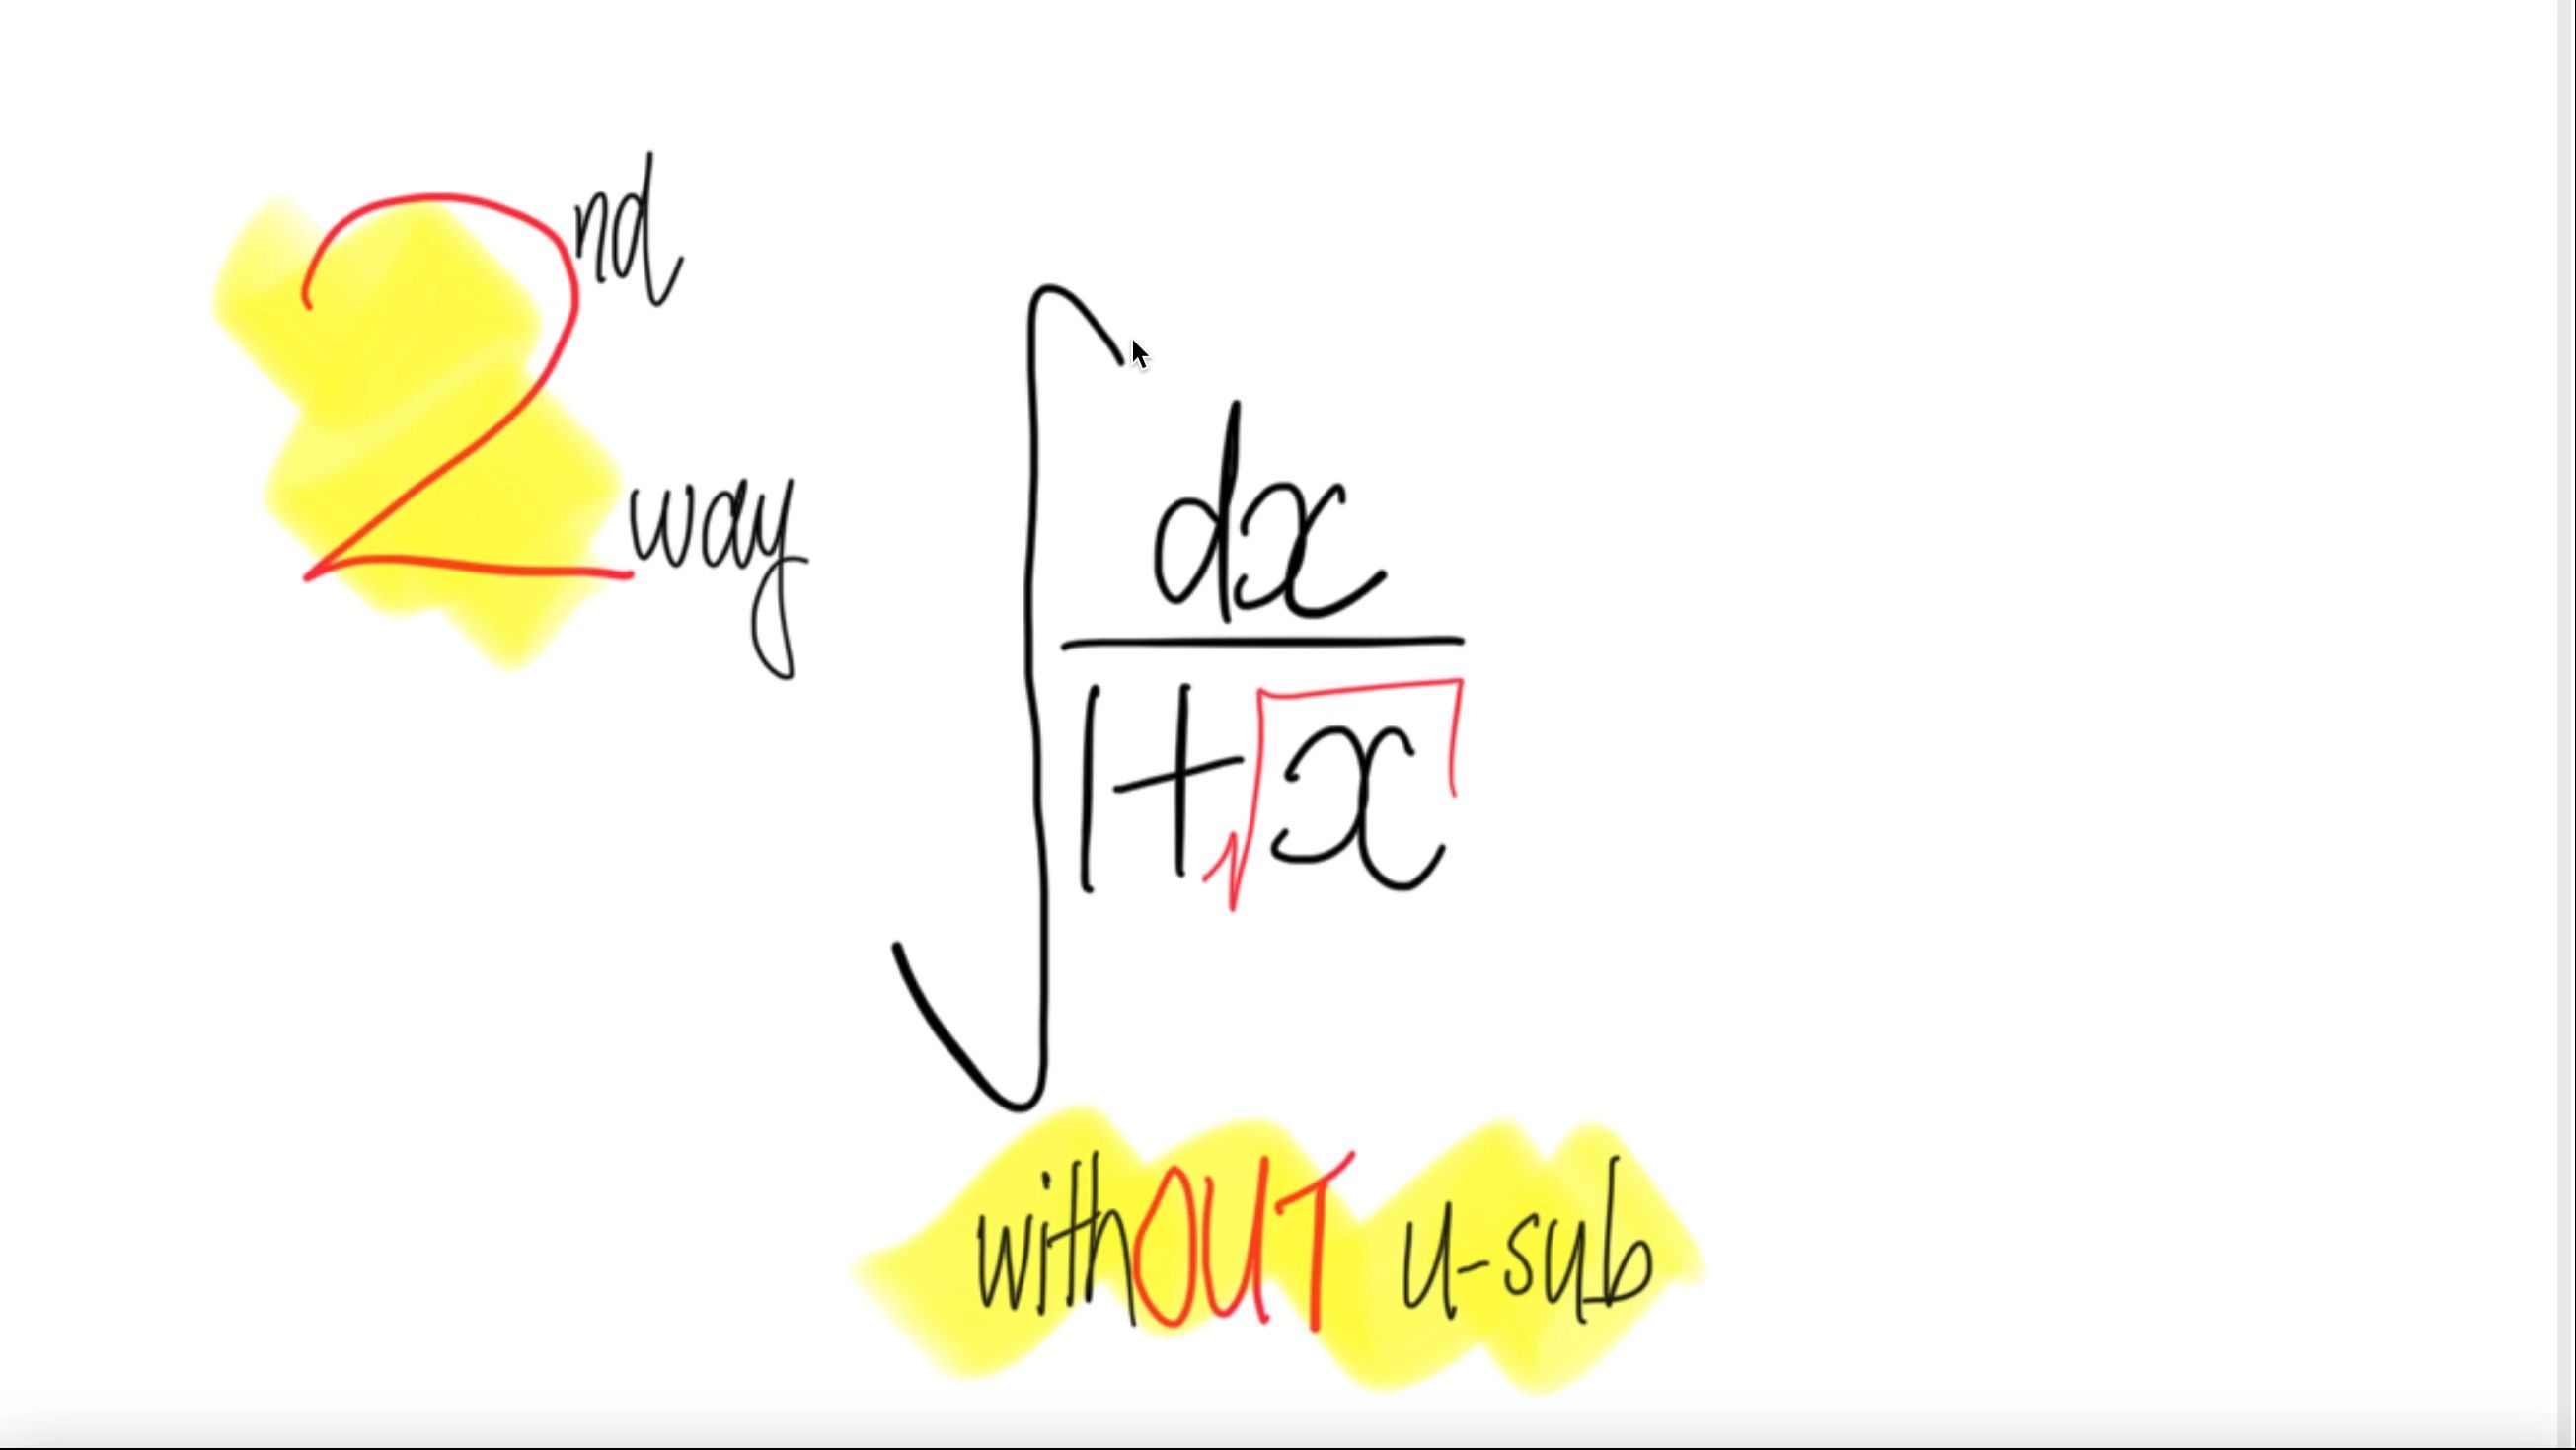 2nd
way
∫ dx
1+√x
withOUT u-sub